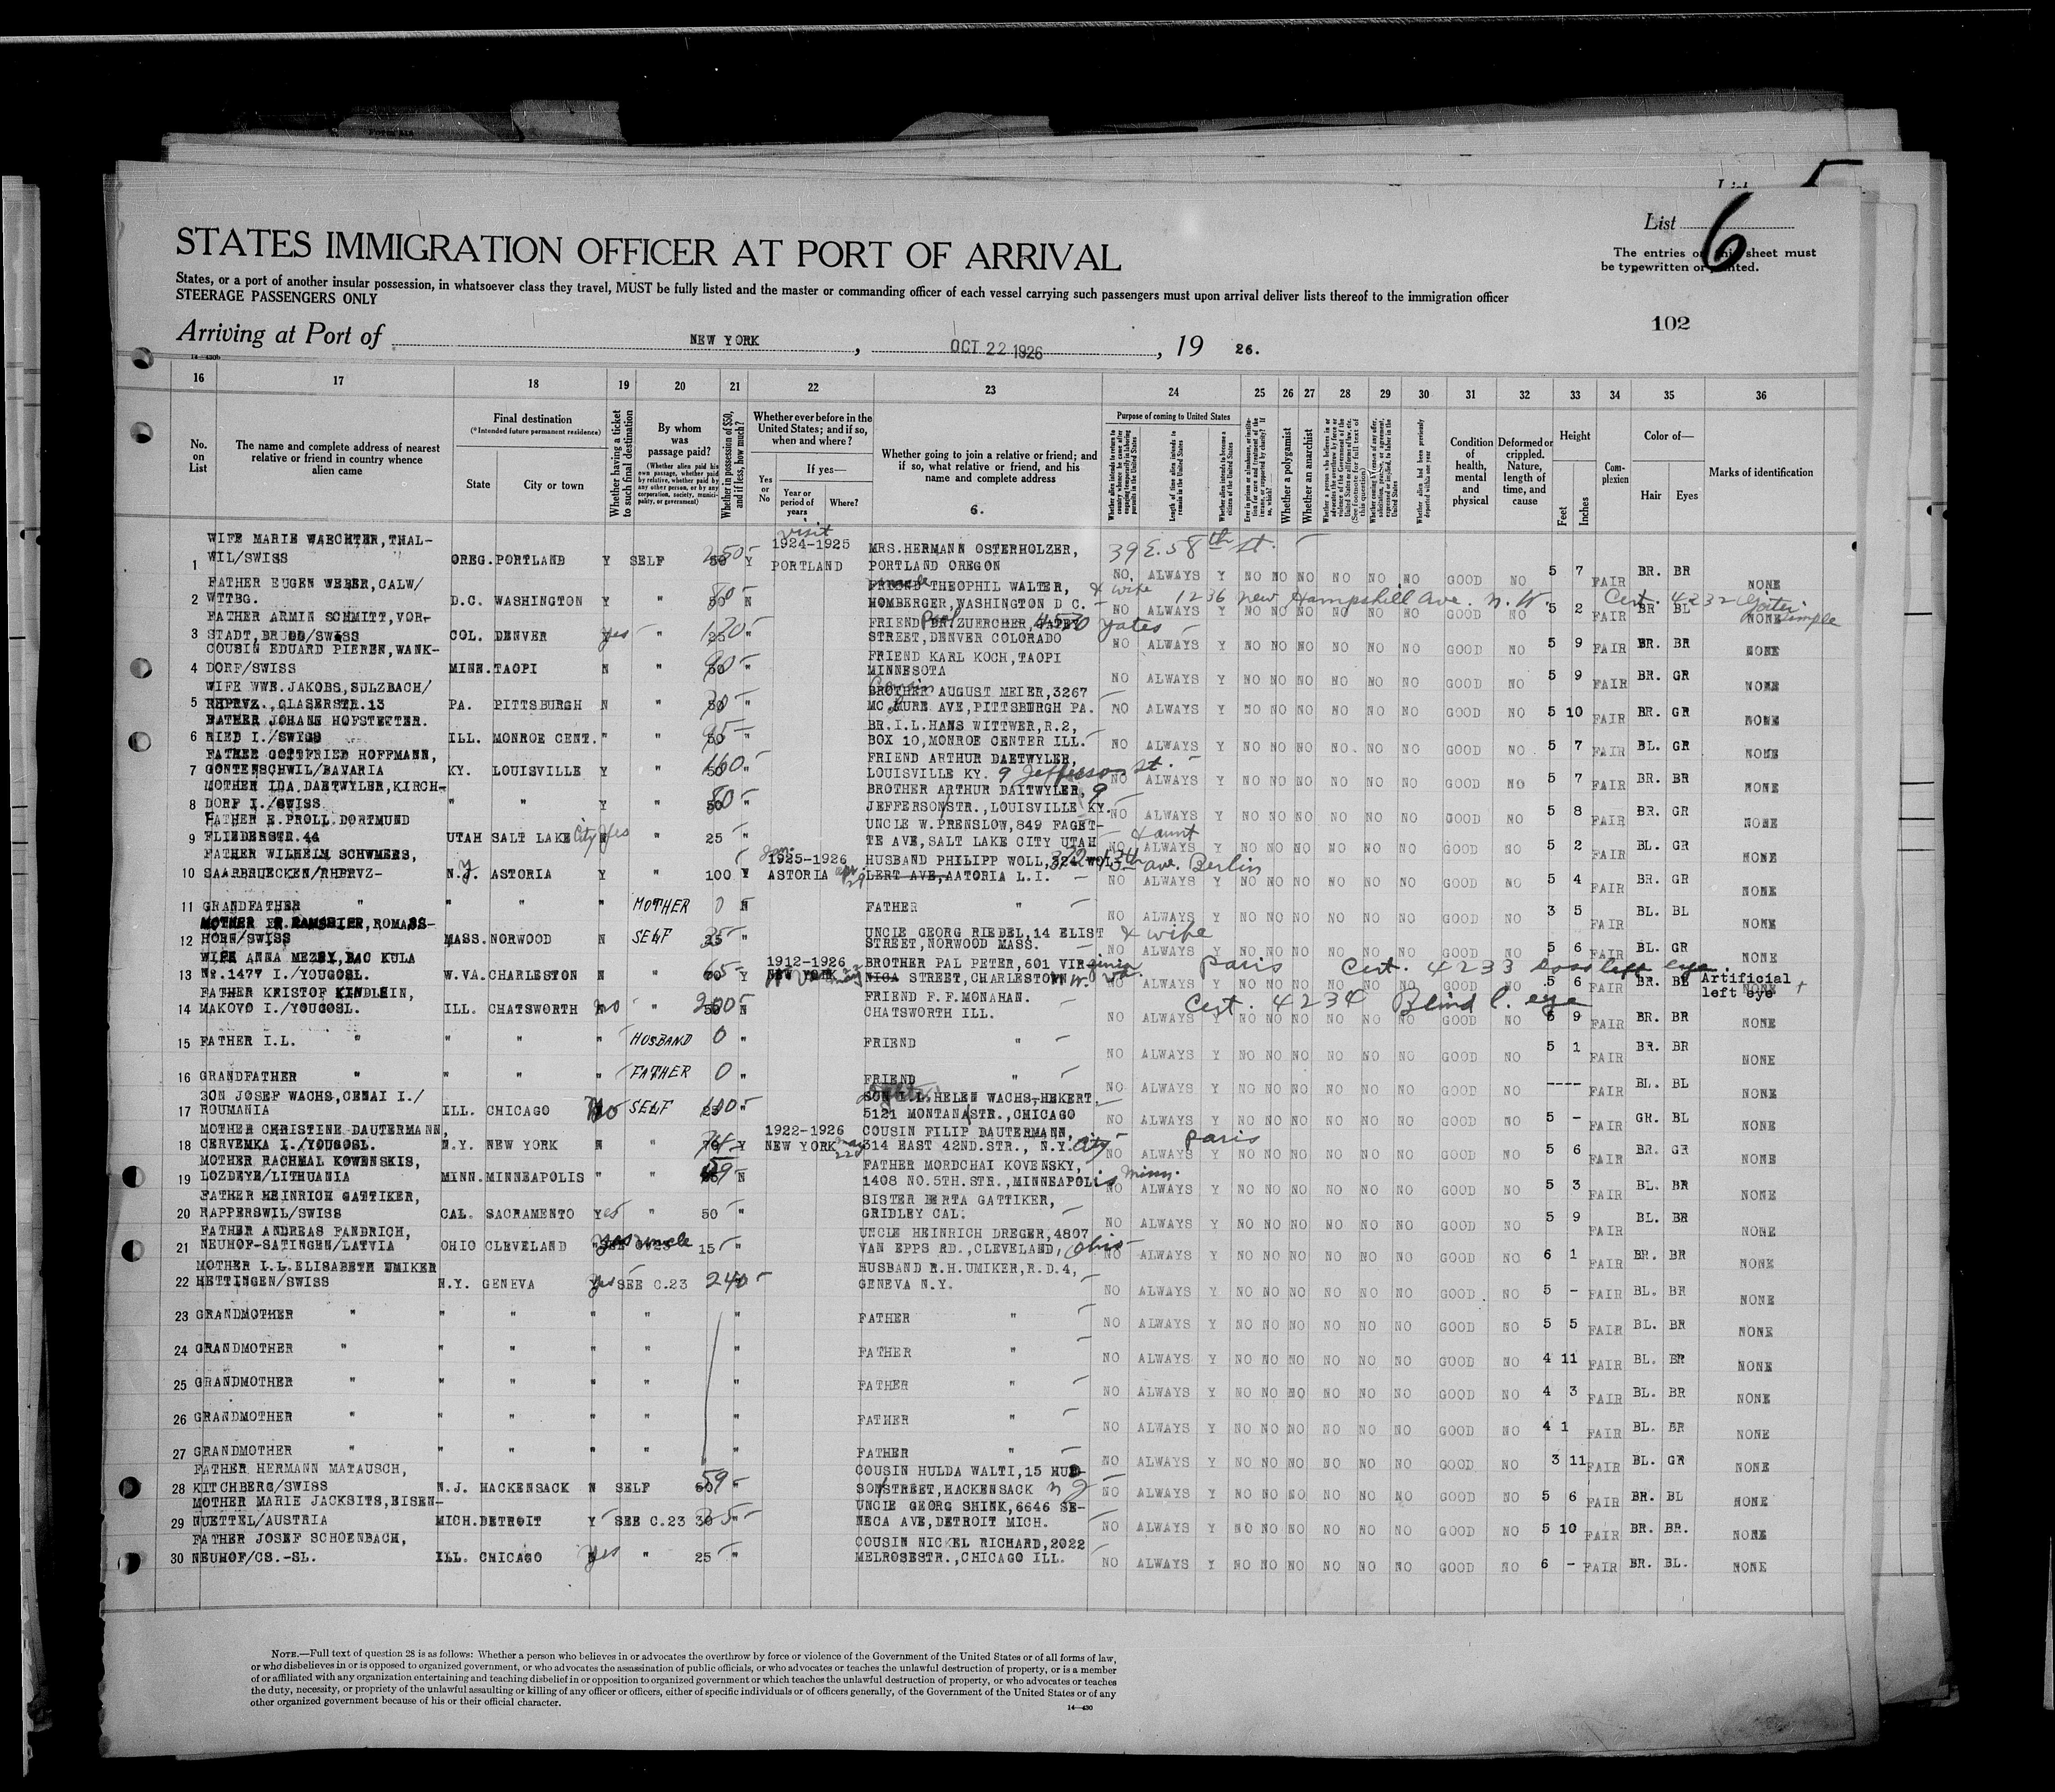 List 6
STATES IMMIGRATION OFFICER AT PORT OF ARRIVAL
The entries on this sheet must
be typewritten or printed.
States, or a port of another insular possession, in whatsoever class they travel, MUST be fully listed and the master or commanding officer of each vessel carrying such passengers must upon arrival deliver lists thereof to the immigration officer
STEERAGE PASSENGERS ONLY
102
Arriving at Port of NEW YORK, OCT 22 1926, 19 26.
16 17 18 19 20 21 22 23 24 25 26 27 28 29 30 31 32 33 34 35 36
No. on List
The name and complete address of nearest relative or friend in country whence alien came
Final destination
(*Intended future permanent residence)
State
City or town
Whether having a ticket to such final destination
By whom was passage paid?
(Whether alien paid his own passage, whether paid by relative, whether paid by any other person, or by any corporation, society, municipality, or government)
Whether in possession of $50, and if less, how much?
Whether ever before in the United States; and if so, when and where?
Yes or No
If yes—
Year or period of years
Where?
Whether going to join a relative or friend; and if so, what relative or friend, and his name and complete address
6.
Purpose of coming to United States
Length of time alien intends to remain in the United States
Whether alien intends to become a citizen of the United States
Whether a polygamist
Whether an anarchist
Whether alien had been previously deported within one year
Condition of health, mental and physical
Deformed or crippled. Nature, length of time, and cause
Height
Feet
Inches
Complexion
Color of—
Hair
Eyes
Marks of identification
1 WIFE MARIE WAECHTER, THAL-
WIL/SWISS OREG. PORTLAND Y SELF 50 Y visit 1924-1925 PORTLAND MRS. HERMANN OSTERHOLZER, 39 E. 58th St.
PORTLAND OREGON NO ALWAYS Y NO NO NO NO NO NO GOOD NO 5 7 FAIR BR. BR NONE
2 FATHER EUGEN WEBER, CALW/
WTTBG. D.C. WASHINGTON Y " 50 N FRIEND THEOPHIL WALTER, & wife
HOMBERGER, WASHINGTON D C. 1236 New Hampshill Ave. N.W. Cert. 4232 Goiter simple
NO ALWAYS Y NO NO NO NO NO NO GOOD NO 5 2 FAIR BR BL NONE
3 FATHER ARMIN SCHMITT, VOR-
STADT, BRUGG/SWISS COL. DENVER yes " 25 " FRIEND ZUERCHER, 4530 Yates
STREET, DENVER COLORADO NO ALWAYS Y NO NO NO NO NO NO GOOD NO 5 9 FAIR BR. BR NONE
4 COUSIN EDUARD PIEREN, WANK-
DORF/SWISS MINN. TAOPI N " 50 " FRIEND KARL KOCH, TAOPI
MINNESOTA NO ALWAYS Y NO NO NO NO NO NO GOOD NO 5 9 FAIR BR. GR NONE
5 WIFE WWE. JAKOBS, SULZBACH/
RHPRVZ., GLASERSTR. 13 PA. PITTSBURGH N " 50 " Cousin BROTHER AUGUST MEIER, 3267
MC. MURE AVE, PITTSBURGH PA. NO ALWAYS Y NO NO NO NO NO NO GOOD NO 5 10 FAIR BR. GR NONE
6 FATHER JOHANN HOFSTETTER.
RIED I./SWISS ILL. MONROE CENT. " " 50 " BR. I.L. HANS WITTWER, R.2,
BOX 10, MONROE CENTER ILL. NO ALWAYS Y NO NO NO NO NO NO GOOD NO 5 7 FAIR BL. GR NONE
7 FATHER GOTTFRIED HOFFMANN,
GONTENSCHWIL/BAVARIA KY. LOUISVILLE Y " 50 " FRIEND ARTHUR DAETWYLER,
LOUISVILLE KY. 9 Jefferson St. NO ALWAYS Y NO NO NO NO NO NO GOOD NO 5 7 FAIR BR. BR NONE
8 MOTHER IDA DAETWYLER, KIRCH-
DORF I./SWISS " " Y " 50 " BROTHER ARTHUR DAITWYLER, 9
JEFFERSONSTR., LOUISVILLE KY. NO ALWAYS Y NO NO NO NO NO NO GOOD NO 5 8 FAIR BR. GR NONE
9 FATHER E. PROLL DORTMUND
FLIEDERSTR. 44 UTAH SALT LAKE City yes " 25 " UNCLE W. PRENSLOW, 849 FAGET-
TE AVE, SALT LAKE CITY UTAH & aunt ALWAYS Y NO NO NO NO NO NO GOOD NO 5 2 FAIR BL. GR NONE
10 FATHER WILHELM SCHWMEES,
SAARBRUECKEN/RHPRVZ- N.Y. ASTORIA Y " 100 Y Jan. 1925-1926 ASTORIA apr 29 HUSBAND PHILIPP WOLL,
LERT AVE, AATORIA L.I. 13th ave. Berlin NO ALWAYS Y NO NO NO NO NO NO GOOD NO 5 4 FAIR BR. GR NONE
11 GRANDFATHER " " " " MOTHER 0 N FATHER " NO ALWAYS Y NO NO NO NO NO NO GOOD NO 3 5 FAIR BL. BL NONE
12 MOTHER FR. RAMSHIER, ROMASS-
HORN/SWISS MASS. NORWOOD N SELF 25 " UNCLE GEORG RIEDEL, 14 ELIST & wife
STREET, NORWOOD MASS. NO ALWAYS Y NO NO NO NO NO NO GOOD NO 5 6 FAIR BL. GR NONE
13 WIFE ANNA MEZEY, BAC KULA
Nr. 1477 I./YOUGOSL. W.VA. CHARLESTON N " 65 Y 1912-1926 NEW YORK BROTHER PAL PETER, 601 VIRginia
STREET, CHARLESTON W. Va. Paris Cert. 4233 Loss left eye.
NO ALWAYS Y 5 6 FAIR BR. BE Artificial left eye NONE
14 FATHER KRISTOF KINDLEIN,
MAKOVO I./YOUGOSL. ILL. CHATSWORTH no " 200 N FRIEND F. F. MONAHAN. Cert. 4234 Blind l. eye
CHATSWORTH ILL. NO ALWAYS Y NO NO NO NO NO NO GOOD NO 5 9 FAIR BR. BR NONE
15 FATHER I.L. " " " " HUSBAND 0 " FRIEND " NO ALWAYS Y NO NO NO NO NO NO GOOD NO 5 1 FAIR BR. BR NONE
16 GRANDFATHER " " " " FATHER 0 " FRIEND " NO ALWAYS Y NO NO NO NO NO NO GOOD NO ---- FAIR BL. BL NONE
17 SON JOSEF WACHS, CENAI I./
ROUMANIA ILL. CHICAGO No SELF 100 " SON I.L. HELEN WACHS-HEKERT.
5121 MONTANASTR., CHICAGO NO ALWAYS Y NO NO NO NO NO NO GOOD NO 5 - FAIR GR. BL NONE
18 MOTHER CHRISTINE DAUTERMANN,
CERVENKA I./YOUGOSL. N.Y. NEW YORK N " Y 1922-1926 NEW YORK COUSIN FILIP DAUTERMANN,
314 EAST 42ND. STR., N.Y. City Paris NO ALWAYS Y NO NO NO NO NO NO GOOD NO 5 6 FAIR BR. GR NONE
19 MOTHER RACHMAL KOWENSKIS,
LOZDEYE/LITHUANIA MINN. MINNEAPOLIS " " N FATHER MORDCHAI KOVENSKY,
1408 NO. 5TH. STR., MINNEAPOLis Minn. NO ALWAYS Y NO NO NO NO NO NO GOOD NO 5 3 FAIR BL. BR NONE
20 FATHER HEINRICH GATTIKER,
RAPPERSWIL/SWISS CAL. SACRAMENTO Yes " 50 " SISTER BERTA GATTIKER,
GRIDLEY CAL. NO ALWAYS Y NO NO NO NO NO NO GOOD NO 5 9 FAIR BL. BR NONE
21 FATHER ANDREAS FANDRICH,
NEUHOF-SATINGEN/LATVIA OHIO CLEVELAND yes uncle 15 " UNCLE HEINRICH DREGER, 4807
VAN EPPS RD., CLEVELAND, Ohio NO ALWAYS Y NO NO NO NO NO NO GOOD NO 6 1 FAIR BR. BR NONE
22 MOTHER I.L. ELISABETH UMIKER
HETTINGEN/SWISS N.Y. GENEVA yes SEE C.23 240 HUSBAND R.H. UMIKER, R.D.4,
GENEVA N.Y. NO ALWAYS Y NO NO NO NO NO NO GOOD NO 5 - FAIR BL. BR NONE
23 GRANDMOTHER " " " " " " FATHER " NO ALWAYS Y NO NO NO NO NO NO GOOD NO 5 5 FAIR BL. BR NONE
24 GRANDMOTHER " " " " " " FATHER " NO ALWAYS Y NO NO NO NO NO NO GOOD NO 4 11 FAIR BL. BR NONE
25 GRANDMOTHER " " " " " " FATHER " NO ALWAYS Y NO NO NO NO NO NO GOOD NO 4 3 FAIR BL. BR NONE
26 GRANDMOTHER " " " " " " FATHER " NO ALWAYS Y NO NO NO NO NO NO GOOD NO 4 1 FAIR BL. BR NONE
27 GRANDMOTHER " " " " " " FATHER " NO ALWAYS Y NO NO NO NO NO NO GOOD NO 3 11 FAIR BL. GR NONE
28 FATHER HERMANN MATAUSCH,
KITCHBERG/SWISS N.J. HACKENSACK N SELF 59 " COUSIN HULDA WALTI, 15 HUD-
SONSTREET, HACKENSACK NJ NO ALWAYS Y NO NO NO NO NO NO GOOD NO 5 6 FAIR BR. BL NONE
29 MOTHER MARIE JACKSITS, EISEN-
NUETTEL/AUSTRIA MICH. DETROIT Y SEE C.23 30 " UNCLE GEORG SHINK, 6646 SE-
NECA AVE, DETROIT MICH. NO ALWAYS Y NO NO NO NO NO NO GOOD NO 5 10 FAIR BR. BR. NONE
30 FATHER JOSEF SCHOENBACH,
NEUHOF/CS.-SL. ILL. CHICAGO yes " 25 " COUSIN NICKEL RICHARD, 2022
MELROSESTR., CHICAGO ILL. NO ALWAYS Y NO NO NO NO NO NO GOOD NO 6 - FAIR BR. BL. NONE
NOTE.—Full text of question 28 is as follows: Whether a person who believes in or advocates the overthrow by force or violence of the Government of the United States or of all forms of law,
or who disbelieves in or is opposed to organized government, or who advocates the assassination of public officials, or who advocates or teaches the unlawful destruction of property, or is a member
of or affiliated with any organization entertaining and teaching disbelief in or opposition to organized government or which teaches the unlawful destruction of property, or who advocates or teaches
the duty, necessity, or propriety of the unlawful assaulting or killing of any officer or officers, either of specific individuals or of officers generally, of the Government of the United States or of any
other organized government because of his or their official character.
14—430